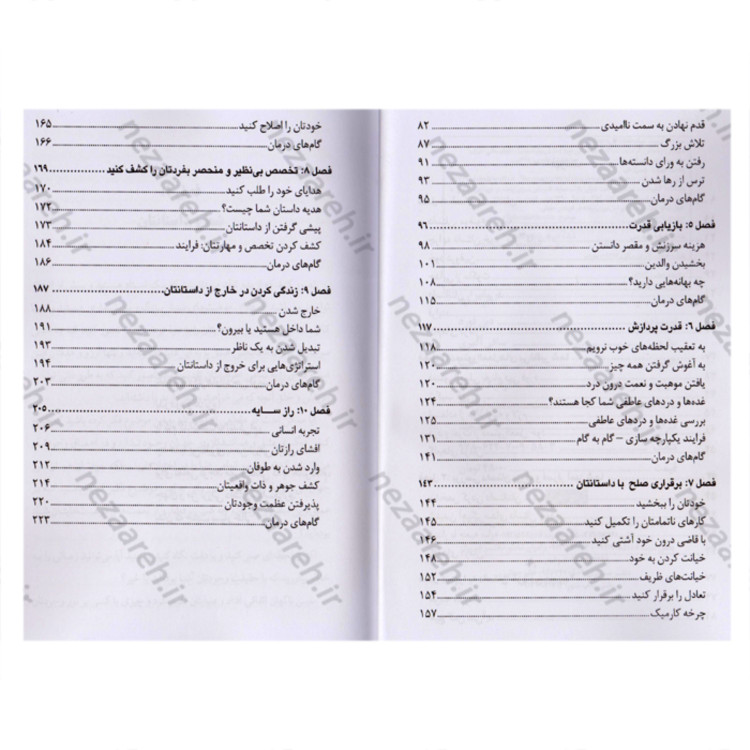 قدم نهادن به سمت ناامیدی ........ ۸۲
تلاش بزرگ ........ ۸۷
رفتن به ورای دانسته‌ها ........ ۹۱
ترس از رها شدن ........ ۹۳
گام‌های درمان ........ ۹۵
فصل ۵: بازیابی قدرت ........ ۹۶
هزینه سرزنش و مقصر دانستن ........ ۹۸
بخشیدن والدین ........ ۱۰۱
چه بهانه‌هایی دارید؟ ........ ۱۰۸
گام‌های درمان ........ ۱۱۵
فصل ۶: قدرت پردازش ........ ۱۱۷
به تعقیب لحظه‌های خوب نرویم ........ ۱۱۸
به آغوش گرفتن همه چیز ........ ۱۲۰
یافتن موهبت و نعمت درون درد ........ ۱۲۰
غده‌ها و دردهای عاطفی شما کجا هستند؟ ........ ۱۲۴
بررسی غده‌ها و دردهای عاطفی ........ ۱۲۵
فرایند یکپارچه سازی – گام به گام ........ ۱۳۱
گام‌های درمان ........ ۱۴۱
فصل ۷: برقراری صلح با داستانتان ........ ۱۴۳
خودتان را ببخشید ........ ۱۴۴
کارهای ناتمامتان را تکمیل کنید ........ ۱۴۵
با قاضی درون خود آشتی کنید ........ ۱۴۶
خیانت کردن به خود ........ ۱۴۸
خیانت‌های ظریف ........ ۱۵۲
تعادل را برقرار کنید ........ ۱۵۴
چرخه کارمیک ........ ۱۵۷
خودتان را اصلاح کنید ........ ۱۶۵
گام‌های درمان ........ ۱۶۶
فصل ۸: تخصص بی‌نظیر و منحصر بفردتان را کشف کنید ........ ۱۶۹
هدایای خود را طلب کنید ........ ۱۷۰
هدیه داستان شما چیست؟ ........ ۱۷۲
پیشی گرفتن از داستانتان ........ ۱۷۳
کشف کردن تخصص و مهارتتان: فرایند ........ ۱۸۴
گام‌های درمان ........ ۱۸۶
فصل ۹: زندگی کردن در خارج از داستانتان ........ ۱۸۷
خارج شدن ........ ۱۸۸
شما داخل هستید یا بیرون؟ ........ ۱۹۱
تبدیل شدن به یک ناظر ........ ۱۹۳
استراتژی‌هایی برای خروج از داستانتان ........ ۱۹۴
گام‌های درمان ........ ۲۰۳
فصل ۱۰: راز سـایه ........ ۲۰۵
تجربه انسانی ........ ۲۰۶
افشای رازتان ........ ۲۰۹
وارد شدن به طوفان ........ ۲۱۲
کشف جوهر و ذات واقعیتان ........ ۲۱۴
پذیرفتن عظمت وجودتان ........ ۲۲۰
گام‌های درمان ........ ۲۲۳
nezaareh.ir
nezaareh.ir
nezaareh.ir
nezaareh.ir
nezaareh.ir
nezaareh.ir